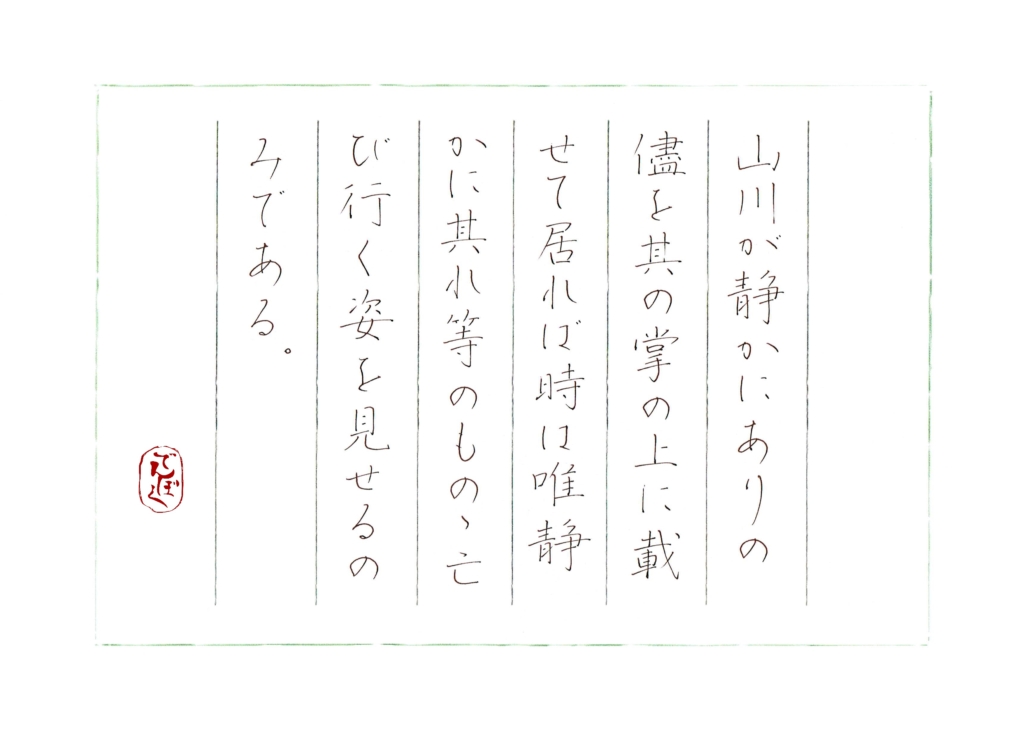 山川が静かにありの
儘を其の掌の上に載
せて居れば時は唯静
かに其れ等のものゝ亡
び行く姿を見せるの
みである。
でんぼく